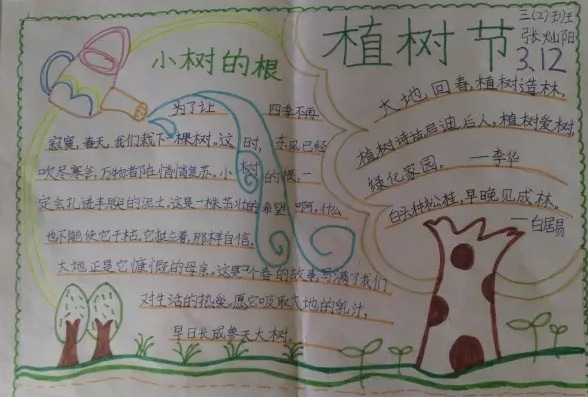 小树的根
为了让 四季不再
寂寞，春天，我们栽下一棵树。这时，东风已经
吹尽寒气，万物都在悄悄复苏。小树的根，一
定会扎进丰腴的泥土，这是一株茁壮的希望，啊，什么
也不能使它干枯。它挺立着，那样自信，
大地正是它慷慨的母亲。这是个春的故事，写满了我们
对生活的热爱。愿它吸取大地的乳汁，
早日长成参天大树。
植树节
三(2)班
张灿阳
3.12
大地回春，植树造林，
植树诗话启迪后人，植树爱树，
绿化家园。 —李华
白头种松桂，早晚见成林。
—白居易